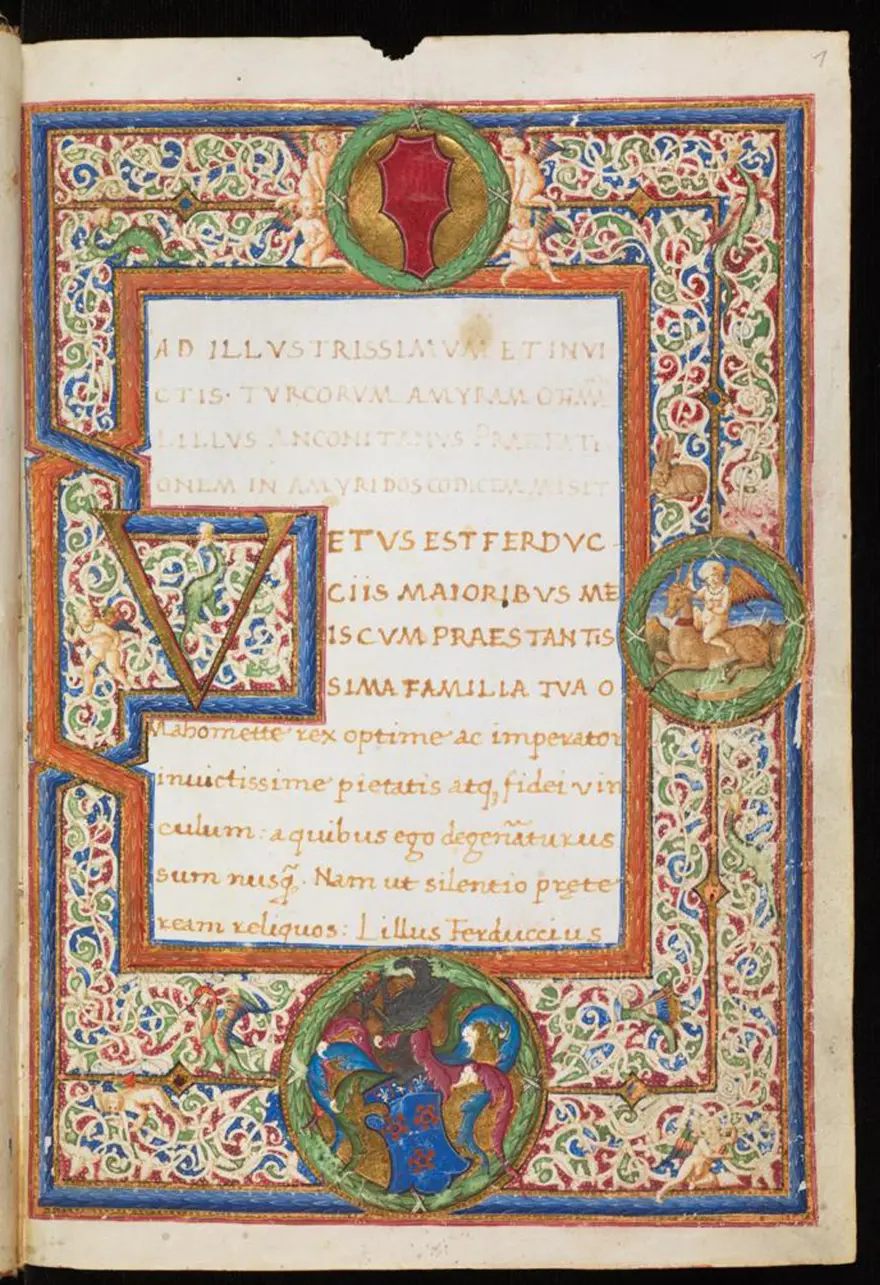 1
AD ILLVSTRISSIMVM ET INVI
CTIS· TVRCORVM AMYRAM OTHMA
LILLVS ANCONITANVS PRAEFATI
ONEM IN AMYRIDOS CODICEM MISIT
VETVS EST FERDVC
CIIS MAIORIBVS ME
IS CVM PRAESTANTIS
SIMA FAMILIA TVA O
Mahomette rex optime ac imperator
inuictissime pietatis atq; fidei vin
culum: a quibus ego degen̄aturus
sum nusq̃. Nam ut silentio pręte
ream reliquos: Lillus Ferduccius